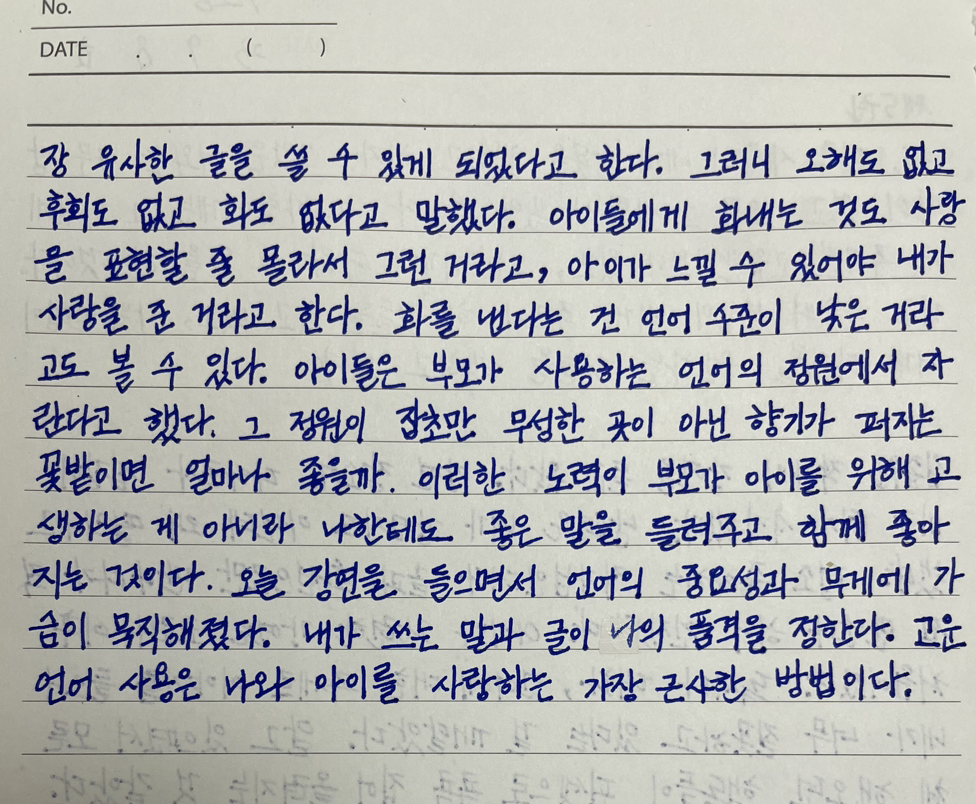 No.
DATE . . ( )
장 유사한 글을 쓸 수 있게 되었다고 한다. 그러니 오해도 없고
후회도 없고 화도 없다고 말했다. 아이들에게 화내는 것도 사랑
을 표현할 줄 몰라서 그런 거라고, 아이가 느낄 수 있어야 내가
사랑을 준 거라고 한다. 화를 낸다는 건 언어 수준이 낮은 거라
고도 볼 수 있다. 아이들은 부모가 사용하는 언어의 정원에서 자
란다고 했다. 그 정원이 잡초만 무성한 곳이 아닌 향기가 퍼지는
꽃밭이면 얼마나 좋을까. 이러한 노력이 부모가 아이를 위해 고
생하는 게 아니라 나한테도 좋은 말을 들려주고 함께 좋아
지는 것이다. 오늘 강연을 들으면서 언어의 중요성과 무게에 가
슴이 묵직해졌다. 내가 쓰는 말과 글이 나의 품격을 정한다. 고운
언어 사용은 나와 아이를 사랑하는 가장 근사한 방법이다.